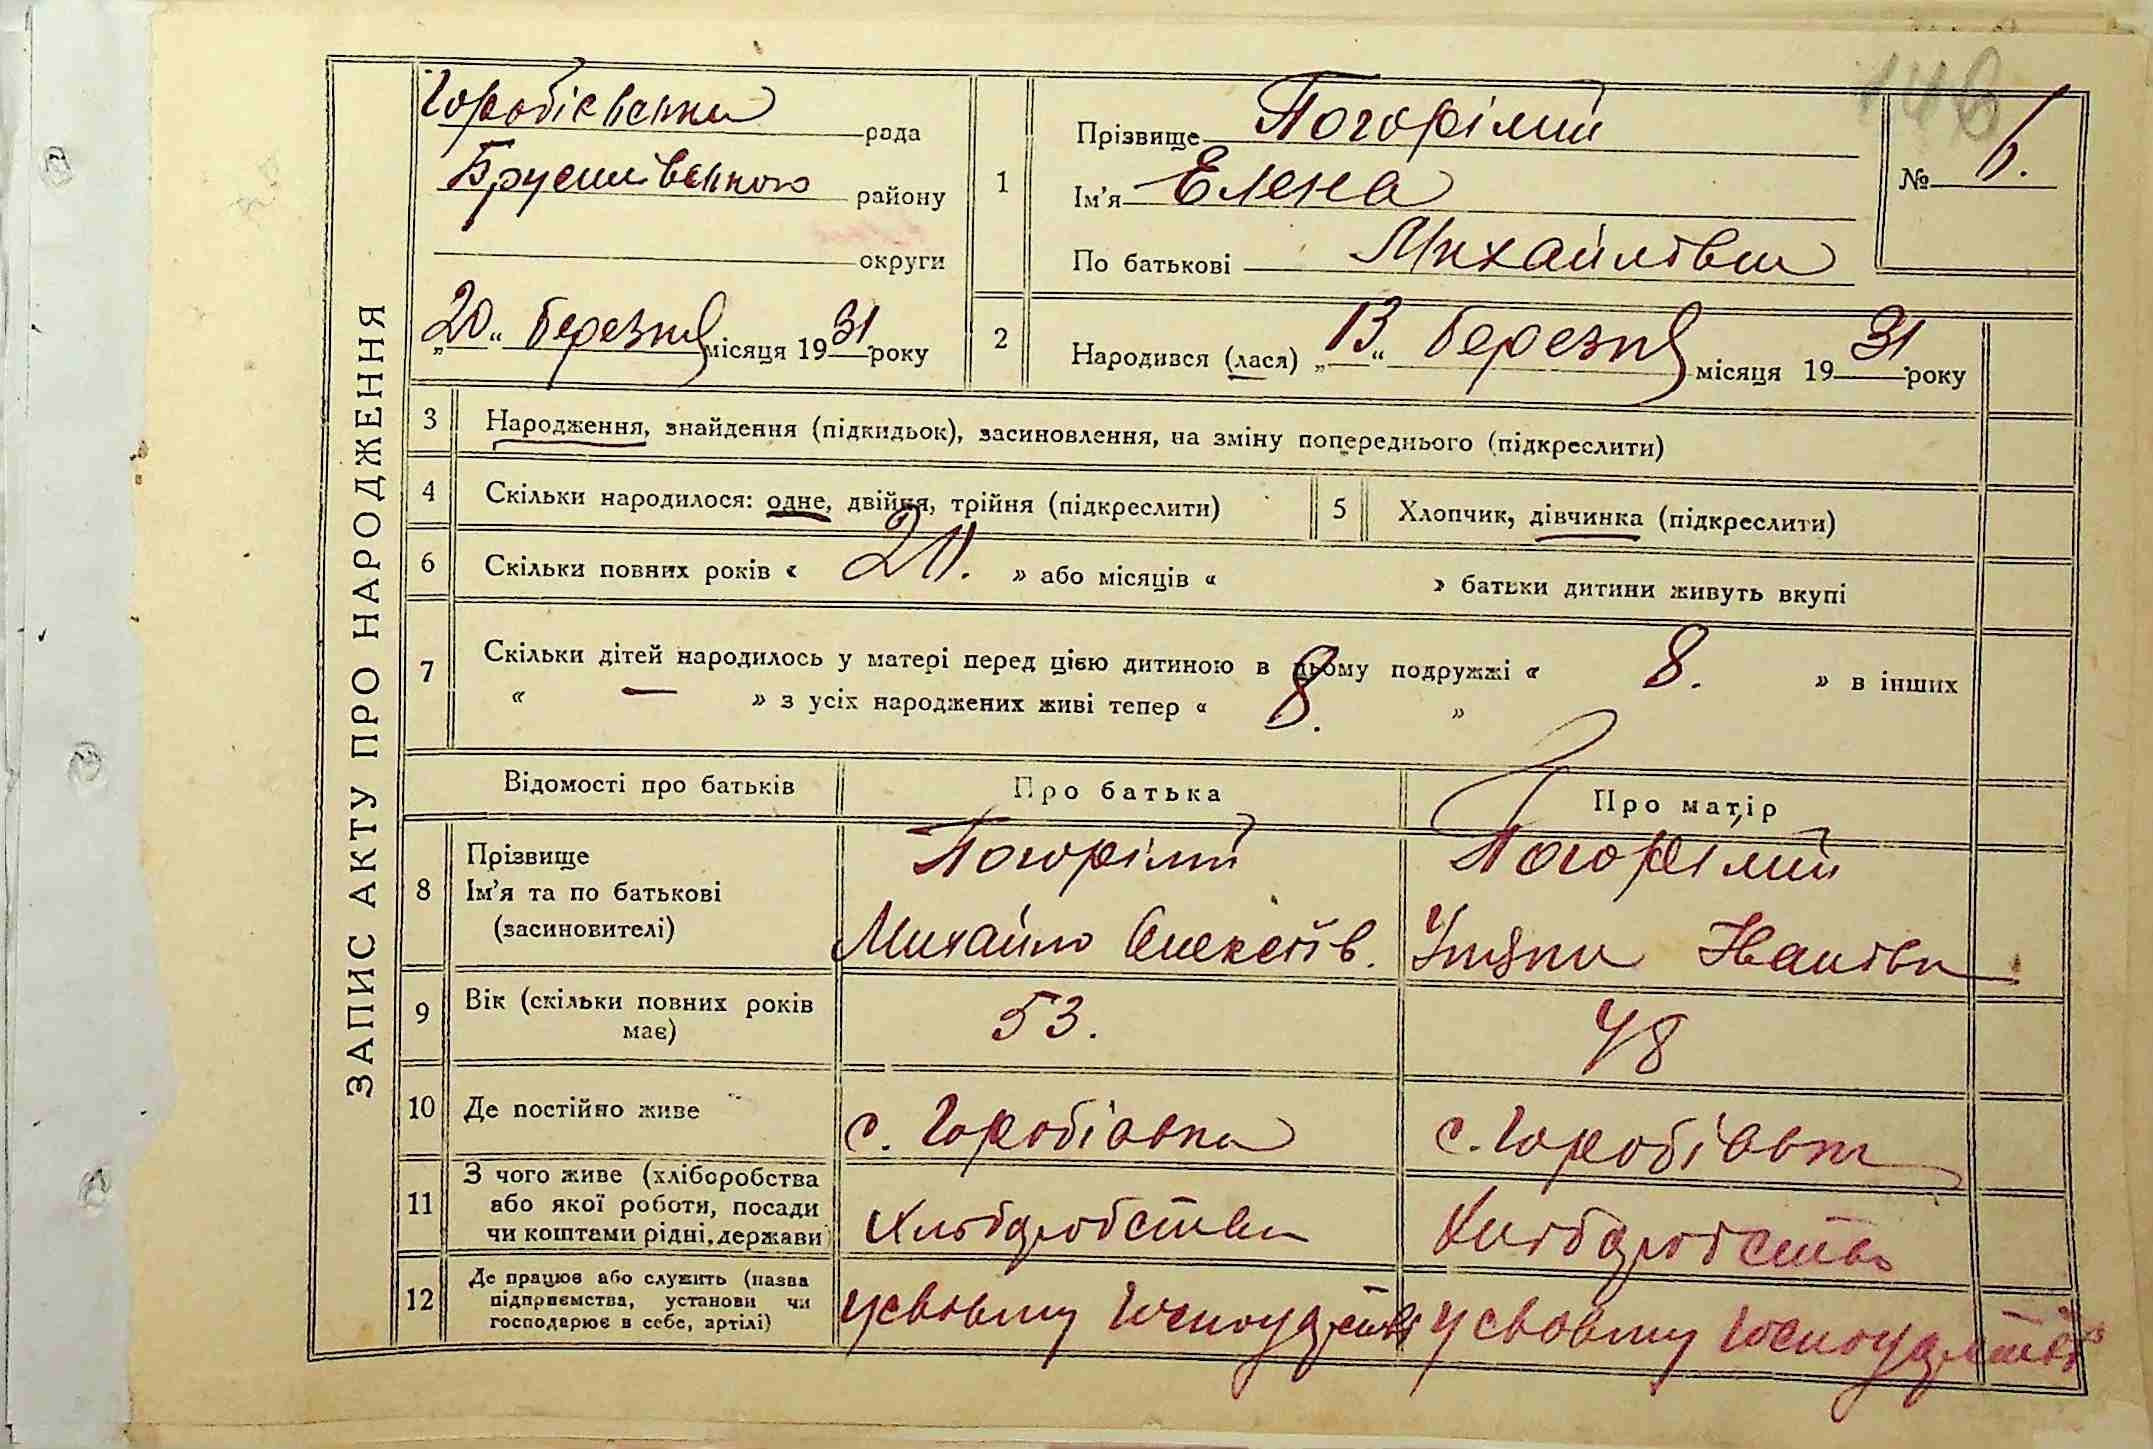 ЗАПИС АКТУ ПРО НАРОДЖЕННЯ
Горобіївська рада
Брусилівського району
округи
„20“ березня місяця 1931 року
1
Прізвище Погорілий
Ім’я Елена
По батькові Михайлівна
146
№ 6.
2
Народився (лася) „13“ березня місяця 1931 року
3 Народження, знайдення (підкидьок), засиновлення, на зміну попереднього (підкреслити)
4 Скільки народилося: одне, двійня, трійня (підкреслити)
5 Хлопчик, дівчинка (підкреслити)
6 Скільки повних років « » або місяців « » батьки дитини живуть вкупі
7 Скільки дітей народилось у матері перед цією дитиною в цьому подружжі « 8. » в інших
« — » з усіх народжених живі тепер « 8. »
Відомості про батьків Про батька Про матір
8 Прізвище
Ім’я та по батькові
(засиновителі)
Погорілий
Михайло Олексіїв.
Погорілий
Іванівна
9 Вік (скільки повних років
має)
53.
48
10 Де постійно живе
с. Горобіївка
с. Горобіївка
11 З чого живе (хліборобства
або якої роботи, посади
чи коштами рідні, держави
Хліборобства
Хліборобства
12 Де працює або служить (назва
підприємства, установи чи
господарює в себе, артілі)
у свовму господарстві
у свовму господарстві